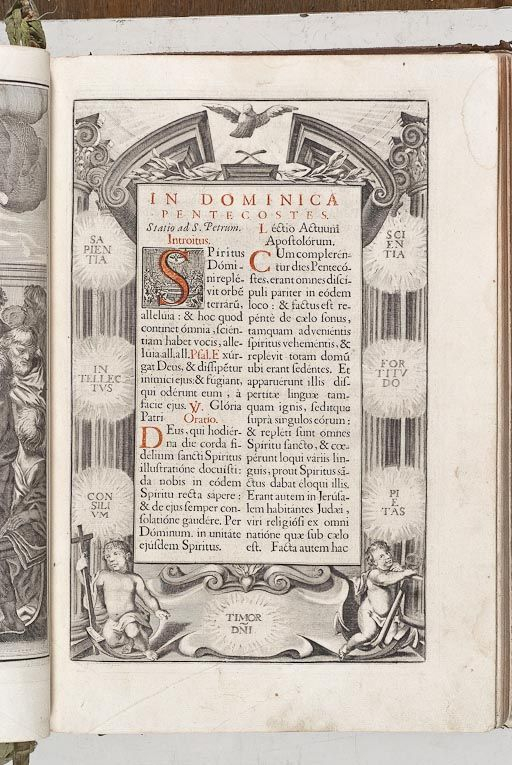 IN DOMINICA
PENTECOSTES.
Statio ad S. Petrum.
Introitus.
Spiritus
Dómi-
ni replé-
vit orbē
terrarū,
allelúia: & hoc quod
cóntinet ómnia, scién-
tiam habet vocis, alle-
lúia. all. all. Psal. Exúr-
gat Deus, & dissipétur
inimíci ejus: & fúgiant,
qui odérunt eum, à
fácie ejus. ℣. Glória
Patri Oratio.
DEus, qui hodiér-
na die corda fi-
délium sancti Spíritus
illustratióne docuísti:
da nobis in eódem
Spíritu recta sápere;
& de ejus semper con-
solatióne gaudére. Per
Dóminum. in unitáte
ejúsdem Spíritus.
Léctio Actuum
Apostolórum.
CUm compleren-
tur dies Pentecó-
stes, erant omnes discí-
puli páriter in eódem
loco: & factus est re-
pénte de cælo sonus,
tamquam adveniéntis
spíritus veheméntis, &
replévit totam domū
ubi erant sedéntes. Et
apparuérunt illis dis-
pertítæ linguæ tam-
quam ignis, sedítque
suprà síngulos eórum:
& repléti sunt omnes
Spíritu sancto, & cœ-
pérunt loqui váriis lin-
guis, prout Spíritus sā-
ctus dabat éloqui illis.
Erant autem in Jerúsa-
lem habitántes Judæi,
viri religiósi ex omni
natióne quæ sub cælo
est. Facta autem hac
SA
PIEN
TIA
IN
TELLEC
TVS
CON
SILI
VM
SCI
EN
TIA
FOR
TITV
DO
PI
ETAS
TIMOR
DÑI